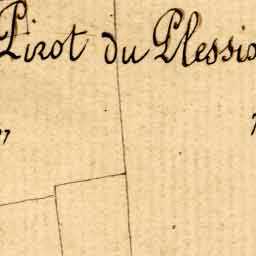 Pirot du Plessis